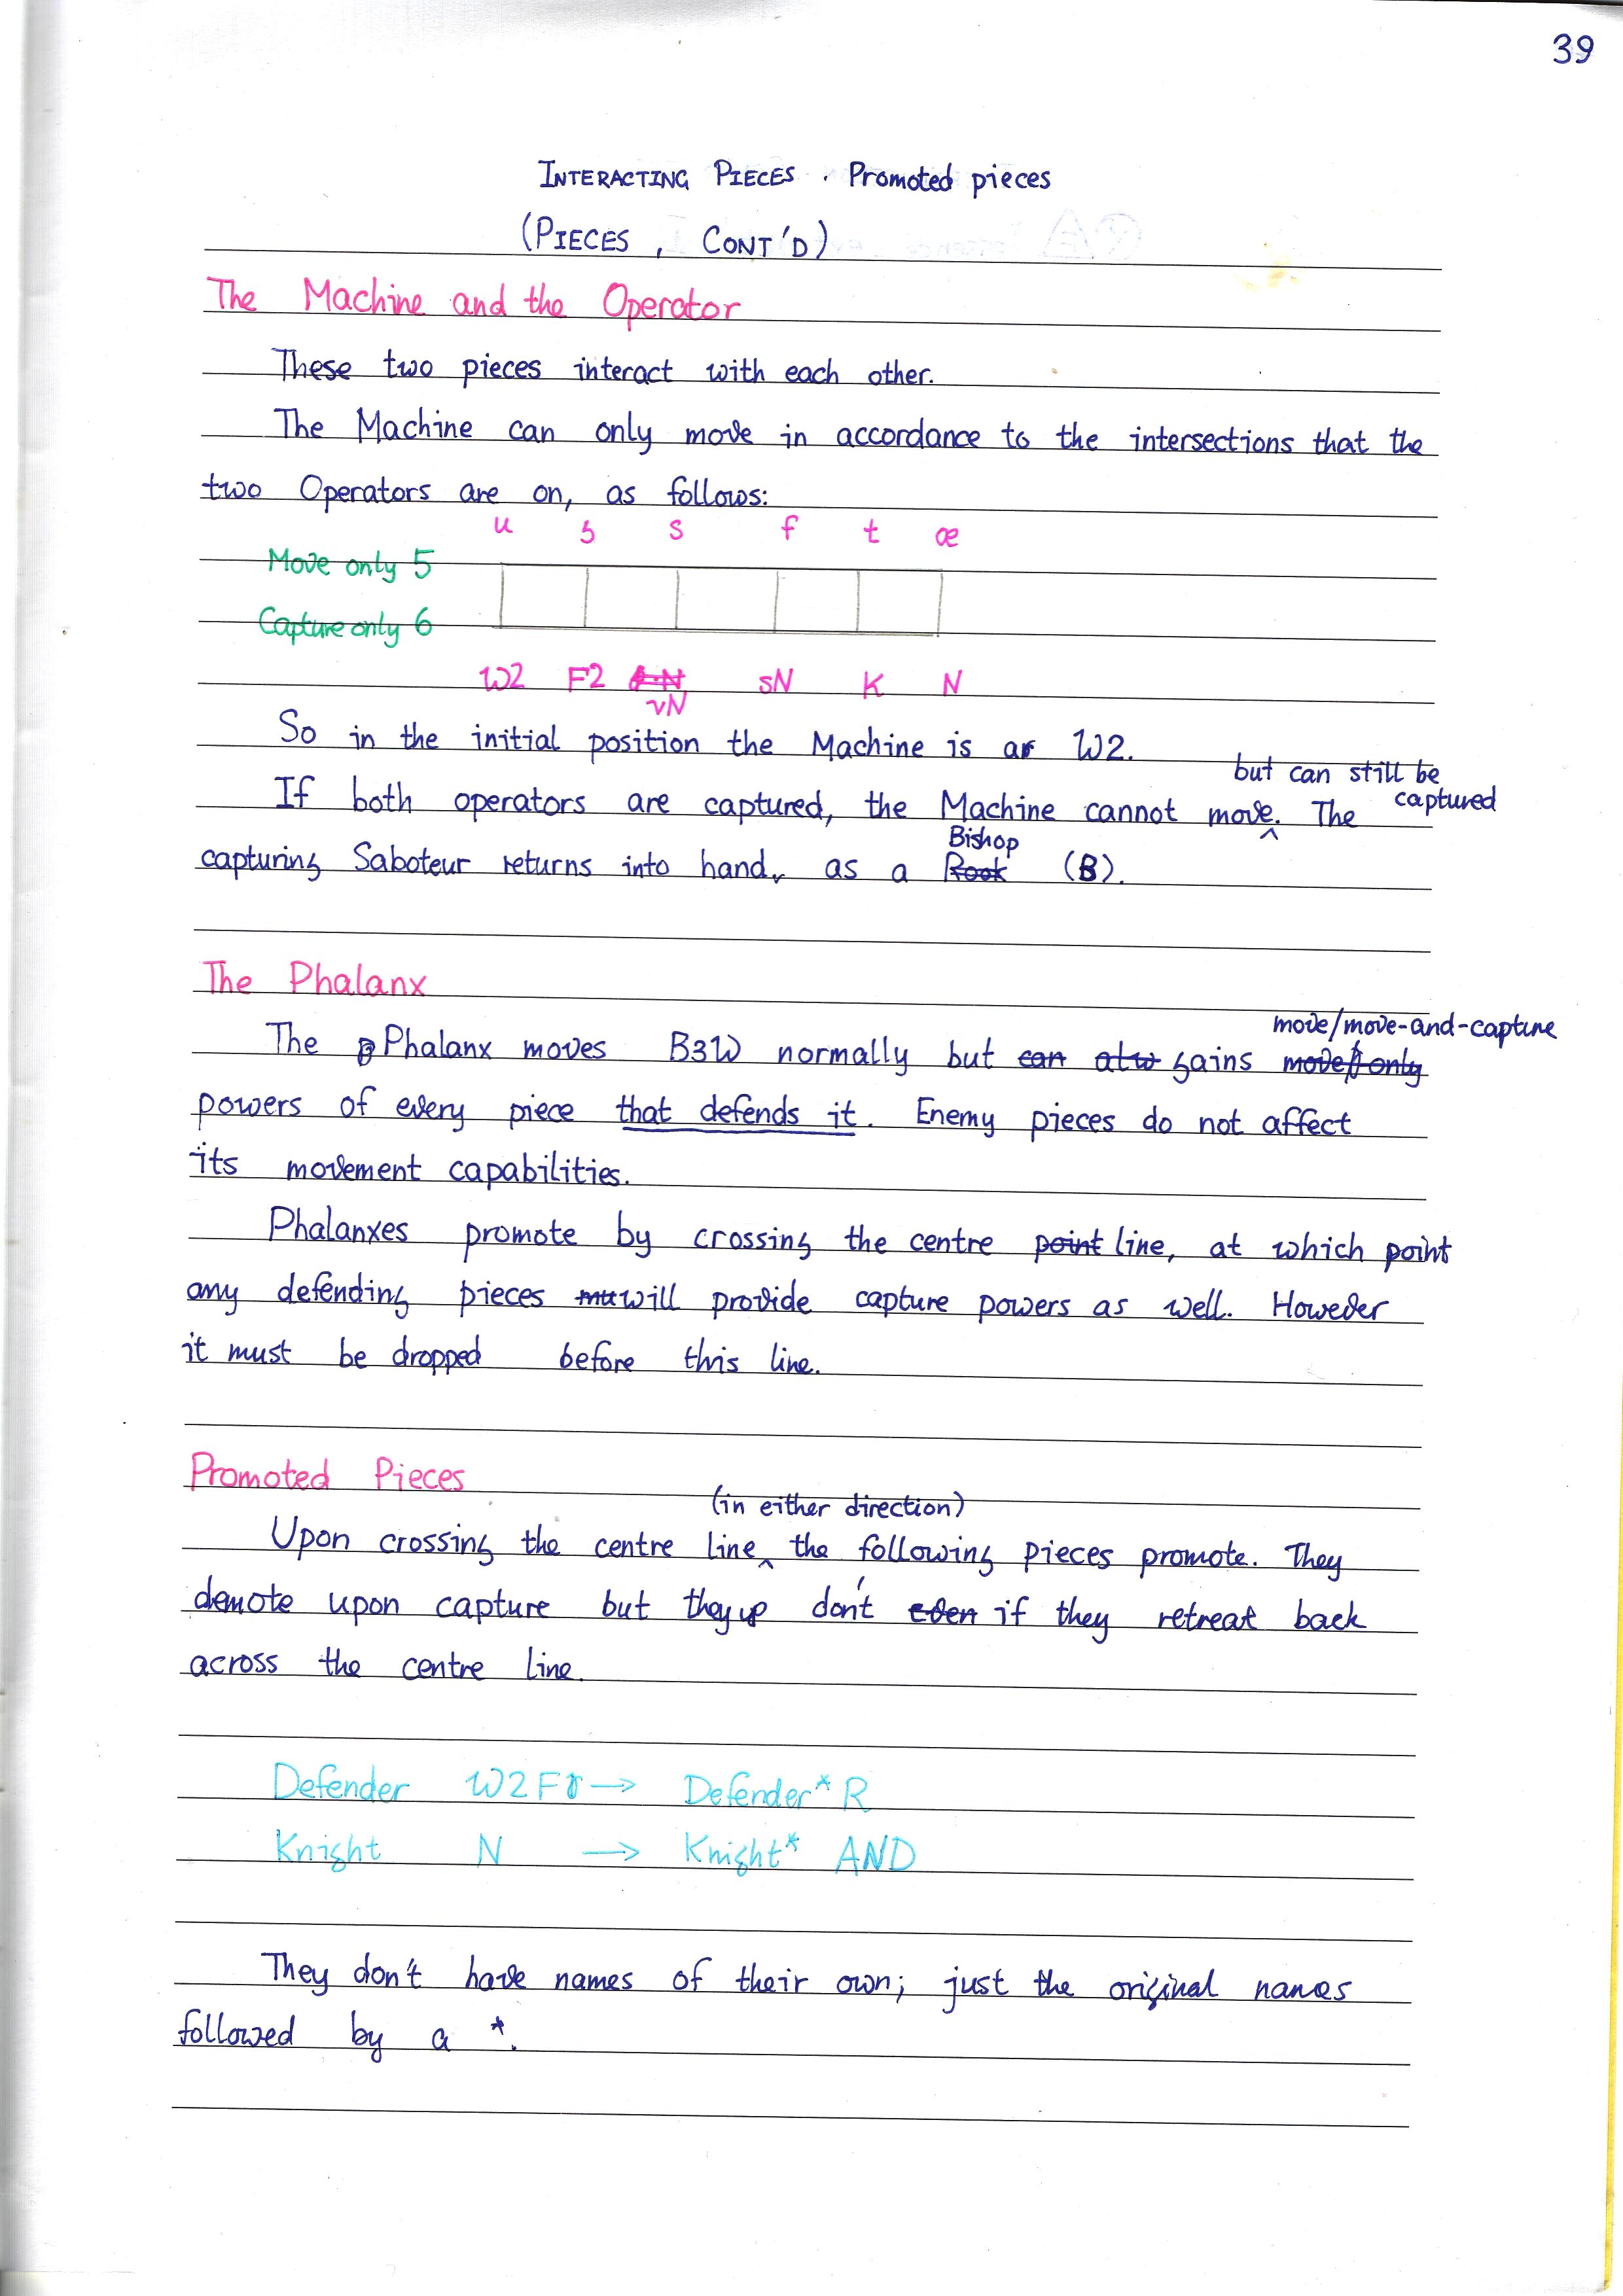 39
INTERACTING PIECES . Promoted pieces
(PIECES , CONT'D)
The Machine and the Operator
These two pieces interact with each other.
The Machine can only move in accordance to the intersections that the
two Operators are on, as follows:
u s f t æ
Move only 5
Capture only 6
W2 F2 sN K N
vN
So in the initial position the Machine is a W2.
but can still be
captured
If both operators are captured, the Machine cannot move. The
Bishop
capturing Saboteur returns into hand, as a Rook (B).
The Phalanx
move/move-and-capture
The Phalanx moves B3W normally but can gains move only
powers of every piece that defends it. Enemy pieces do not affect
its movement capabilities.
Phalanxes promote by crossing the centre point line, at which point
any defending pieces will provide capture powers as well. However
it must be dropped before this line.
Promoted Pieces
(in either direction)
Upon crossing the centre line the following pieces promote. They
demote upon capture but they don't even if they retreat back
across the centre line.
Defender W2F → Defender* R
Knight N → Knight* AND
They don't have names of their own; just the original names
followed by a *.